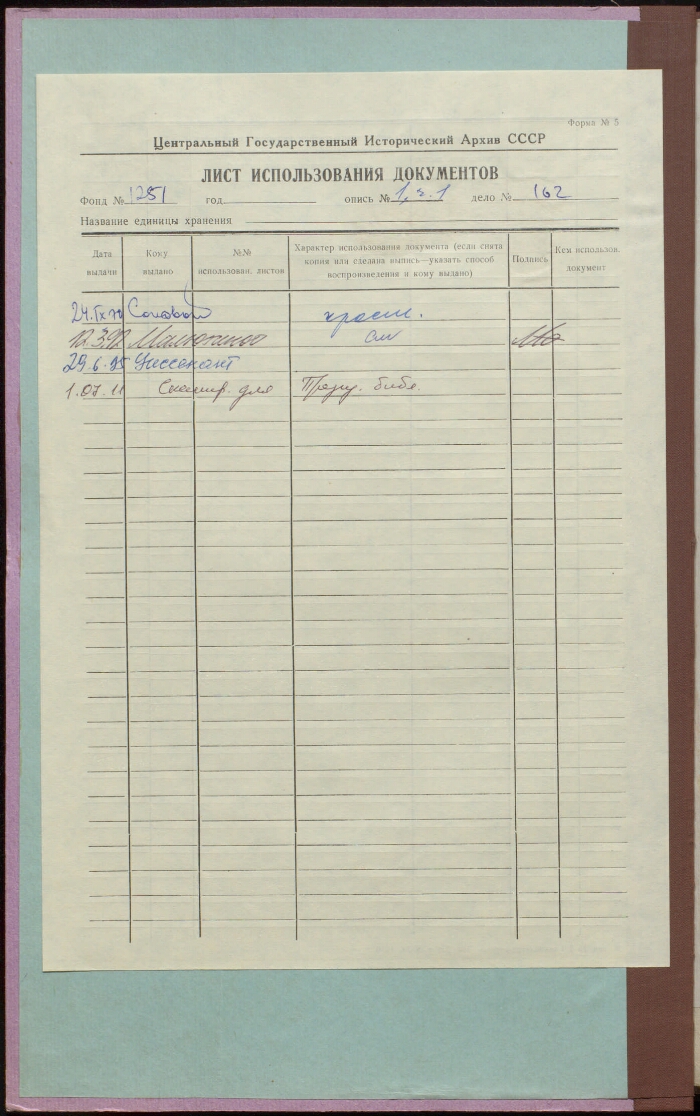 Форма № 5
Центральный Государственный Исторический Архив СССР
ЛИСТ ИСПОЛЬЗОВАНИЯ ДОКУМЕНТОВ
Фонд № 1251 год опись № 1, з. 1 дело № 162
Название единицы хранения
Дата выдачи
Кому выдано
№№ использован. листов
Характер использования документа (если снята копия или сделана выпись—указать способ воспроизведения и кому выдано)
Подпись
Кем использов. документ
24.IX
12.3.92
29.6.95
1.07.11 для